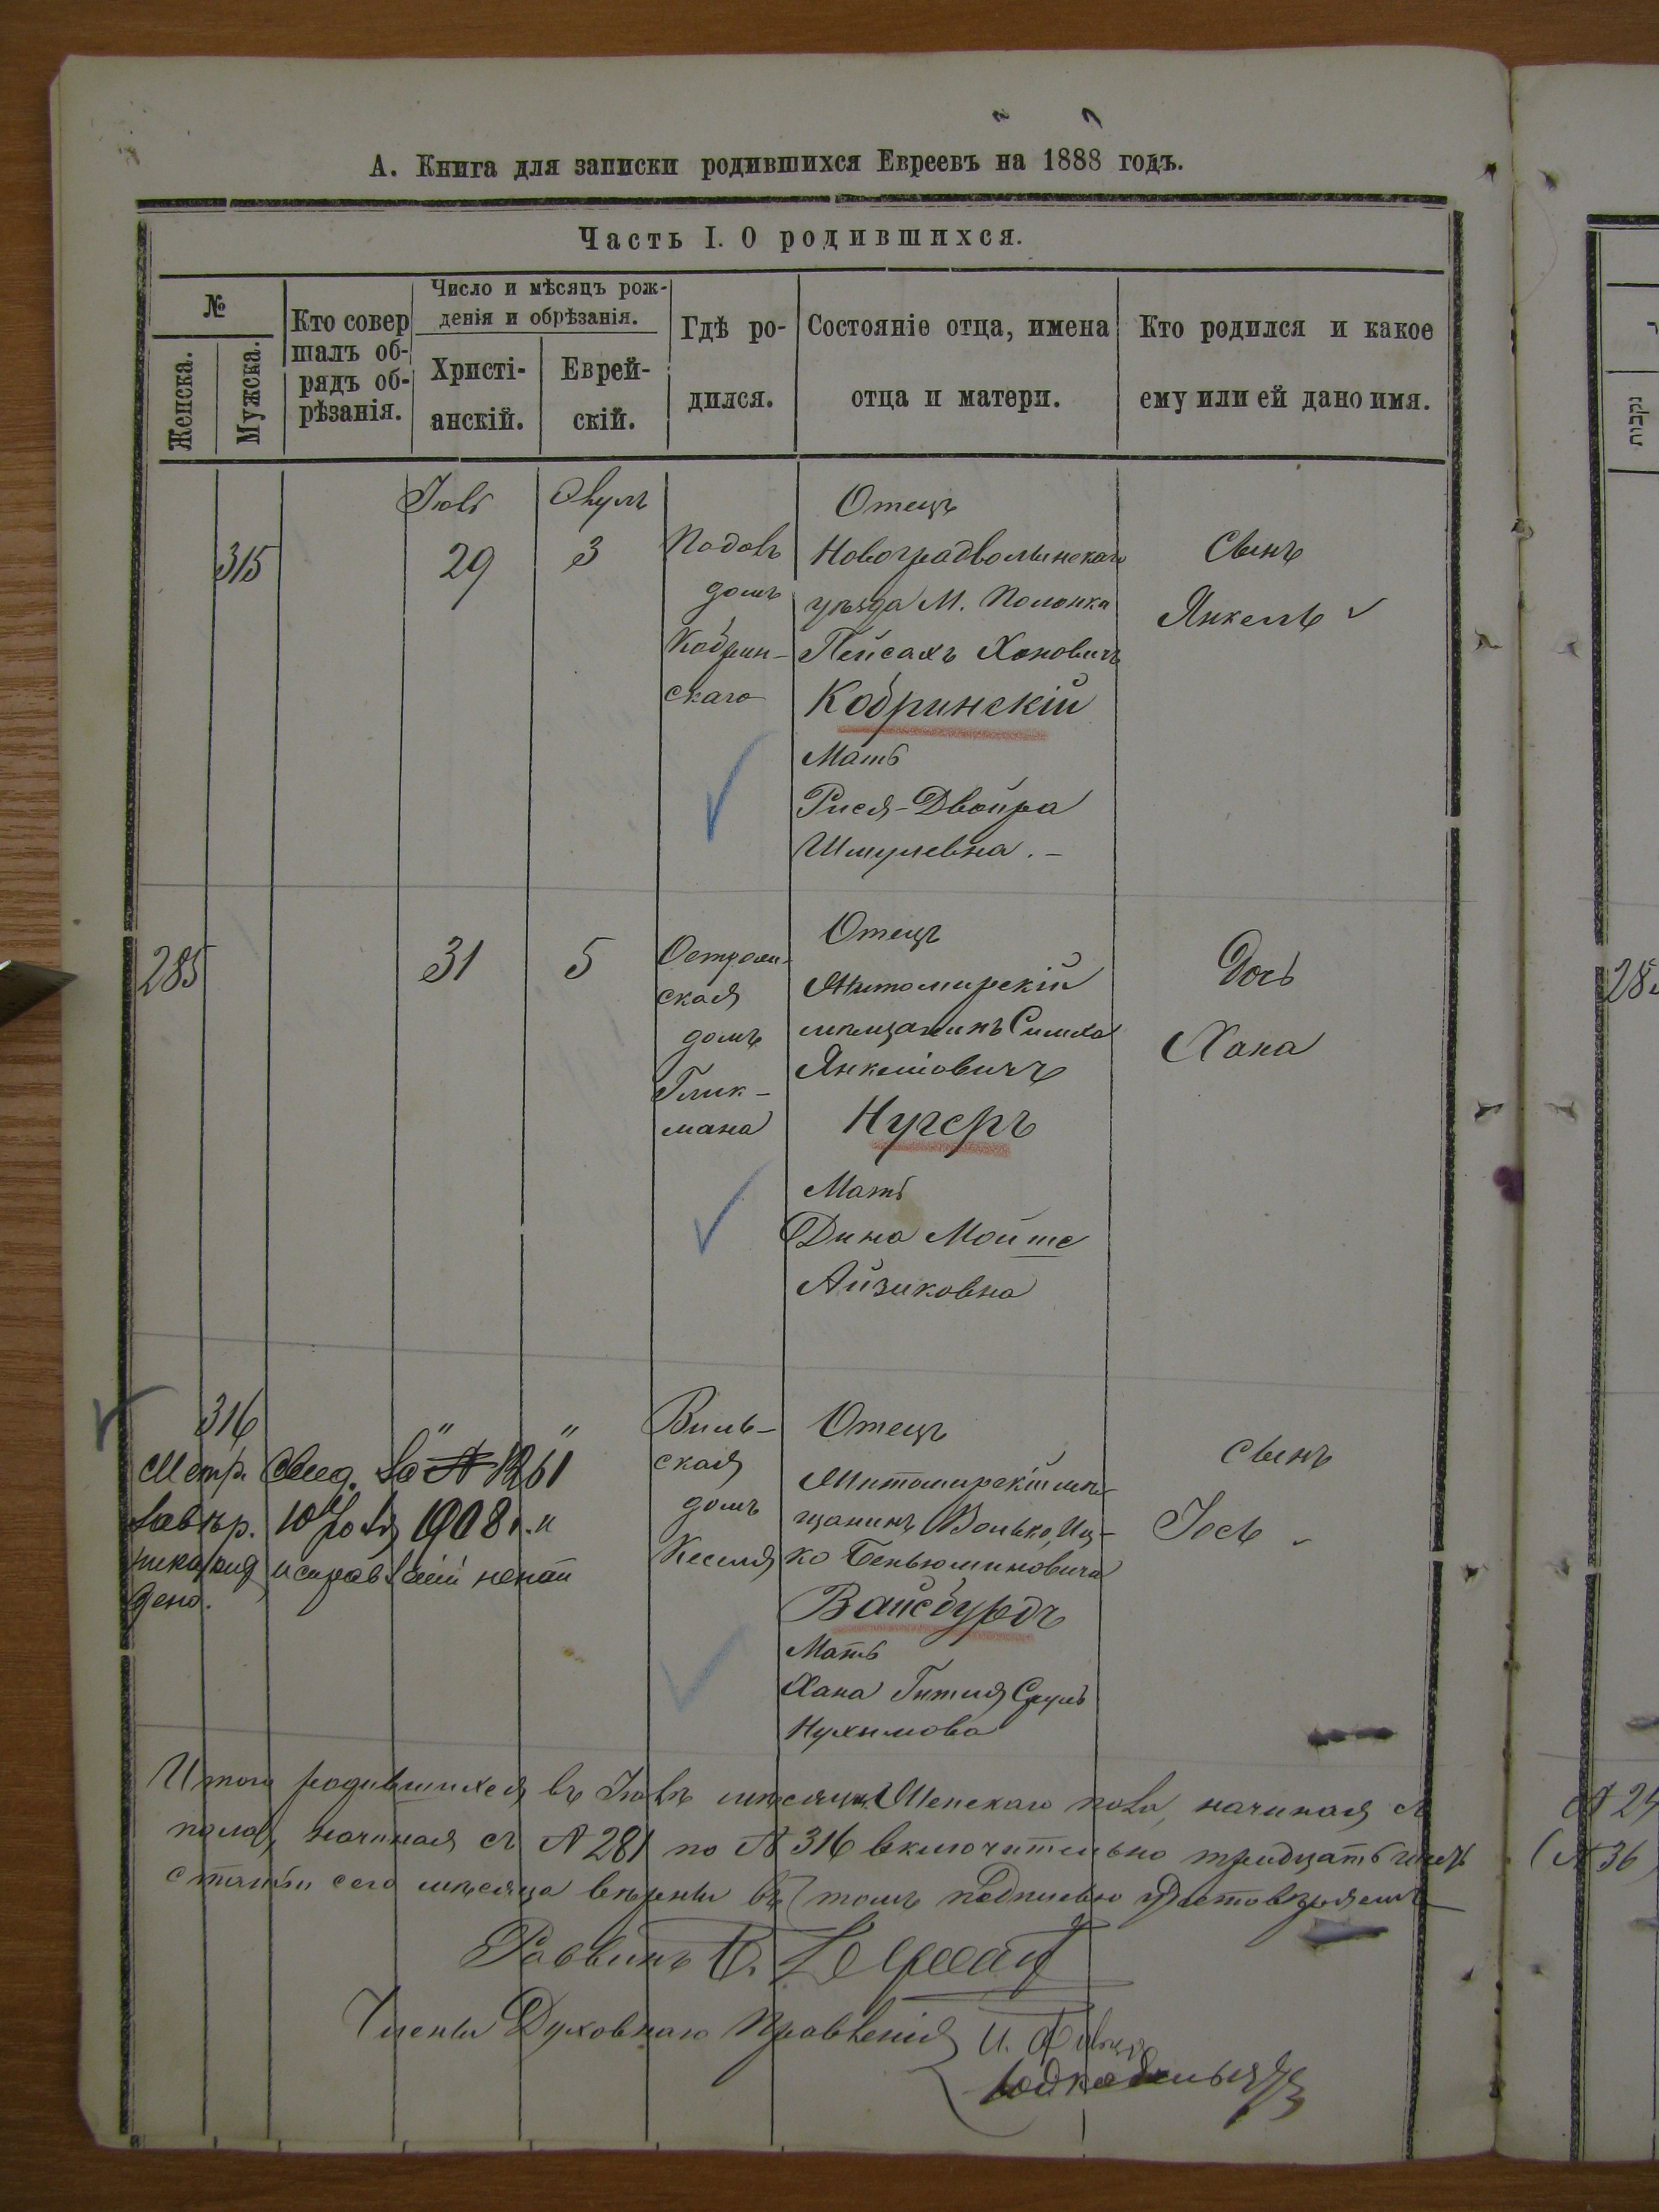 А. Книга для записки родившихся Евреевъ на 1888 годъ.
Часть I. О родившихся.
№
Женска.
Мужска.
Кто совер
шалъ об-
рядъ об-
рѣзанія.
Число и мѣсяцъ рож-
денія и обрѣзанія.
Христі-
анскій.
Еврей-
скій.
Гдѣ ро-
дился.
Состояніе отца, имена
отца и матери.
Кто родился и какое
ему или ей дано имя.
315
Іюль
29
3
домъ
Кобрин-
скаго
Отецъ
Новоградволынскаго
уѣзда М. Полонка
Пейсахъ Хоновичъ
Кобринскій
Мать
Рися-Двойра
Шмулевна.-
Сынъ
Янкель
285
31
5
ская
домъ
Глик-
мана
Отецъ
Житомирскій
мѣщанинъ Симха
Янкелiовичъ
Нугеръ
Мать
Дина Мойше
Айзиковна
Дочь
Хана
316
" "
Метр. Свид. 1261
1908 г. и
никакихъ исправленій не най
дено.
Виль-
ская
домъ
Кесселя
Отецъ
Житомирскій мѣ-
щанинъ Волько, Иц-
ко Беньюминовичъ
Вайсбурдъ
Мать
Хана Гитля Сруль
Нухимова
Сынъ
Іось
Итого родившихся въ Іюлѣ мѣсяцѣ Женскаго пола, начиная съ
пола, начиная съ № 281 по № 316 включительно тридцать шесть
статьи сего мѣсяца вѣрны въ томъ подписью удостовѣряемъ
Раввинъ
Члены Духовнаго Правленія
נקבות
28
№ 36